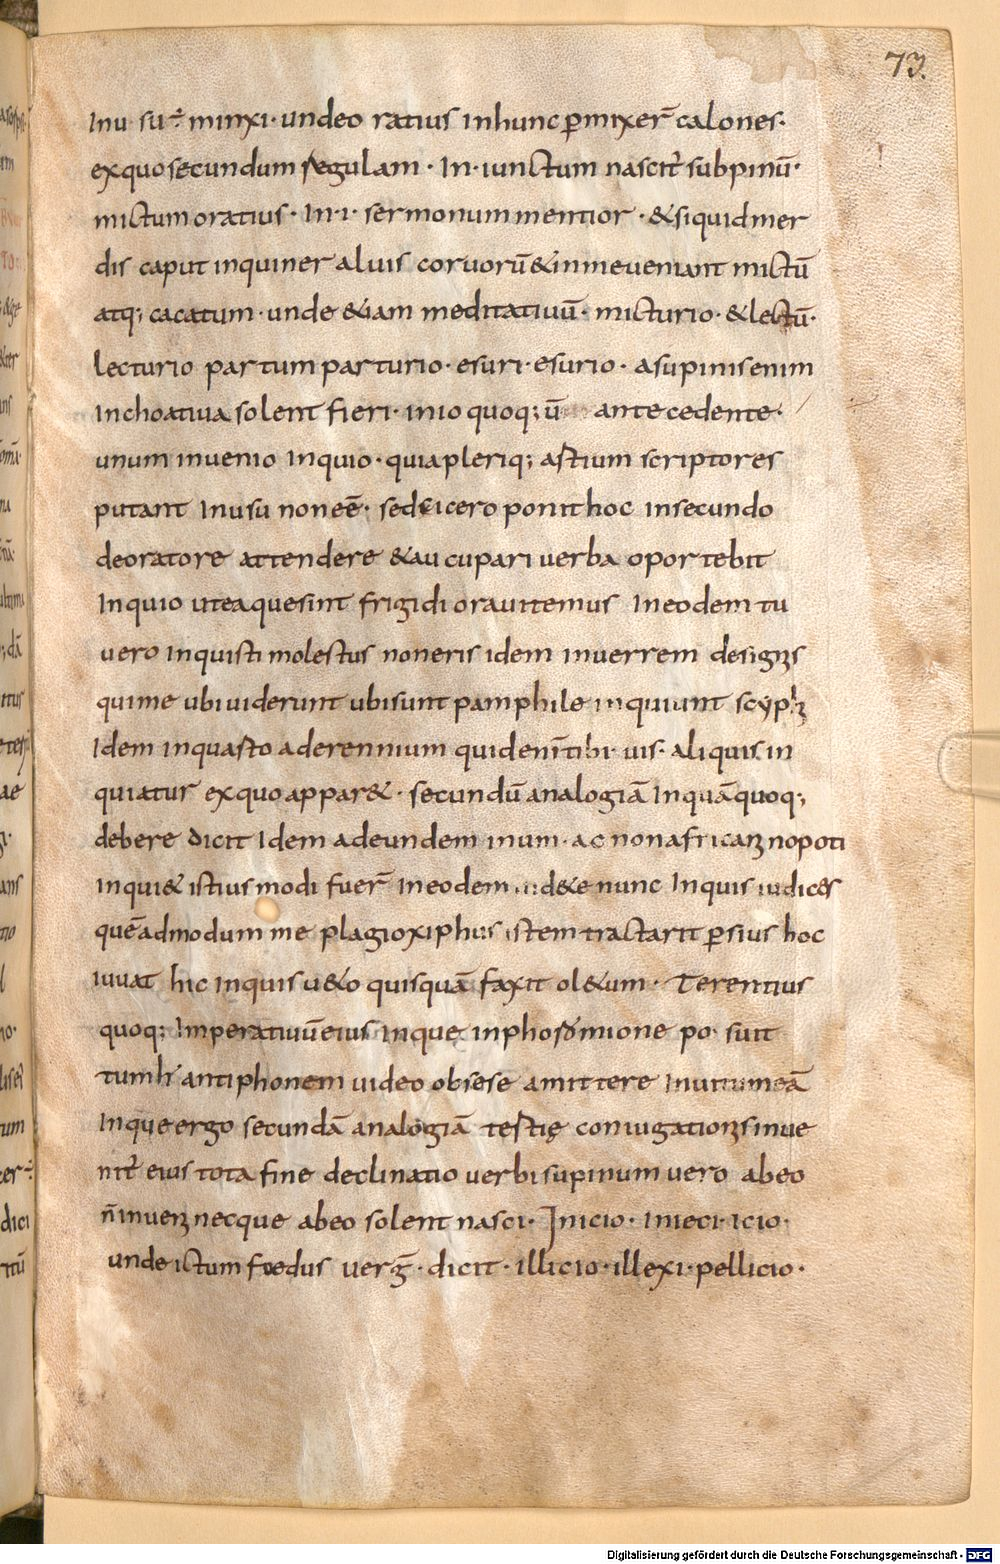 73.
Inu su÷ minxi· undeo ratius inhunc p̄mixer̄ calones·
exquosecundum regulam · In·iunctum nascit̄ subpinū·
mictumoratius · In·i· sermonummentior · &siquidmer
dis caput inquiner aluis coruorū&inmeueniant mictū
atq; cacatum· unde &iam meditatiuū· micturio· &lectū·
lecturio partum parturio· esuri· esurio· asupinisenim
Inchoatiua solent fieri· inio quoq; ū antecedente·
unum inuenio Inquio· quiapleriq; astium scriptores
putant Inusu noneē· sedcicero ponit hoc insecundo
deoratore attendere &aucupari uerba oportebit
Inquio uteaquesint frigidi orauitemus Ineodem tu
uero Inquisti molestus noneris idem inuerrem
quime ubi uiderunt ubisunt pamphile inquiunt
Idem inquasto aderennium quidenītibi· uis· aliquis in
quiatur exquoappar&· secundū analogiā Inquāquoq;
debere dicit Idem adeundem inum· ac nonafricanꝫ nopoti
inqui& istiusmodi fuer̄ Ineodem nunc Inquis iudices
quēadmodum me plagioxiphus istem tractarit p̄sius hoc
iuuat hic Inquis u&o quisquā faxit ol&um· Terentius
quoq; Imperatiuū eius inque inphosdmione po suit
tumh antiphonem uideo obsese amittere Inuitumeā
Inque ergo secundā analogiā testię coniugationꝫ inue
nit̄ eius tota fine declinatio uerbi supinum uero abeo
n̄ inuenꝫ necque abeo solent nasci· Inicio· inieci· icio·
unde ictum foedus uerḡ· dicit· illicio· illexi· pellicio·
Digitalisierung gefördert durch die Deutsche Forschungsgemeinschaft - DFG